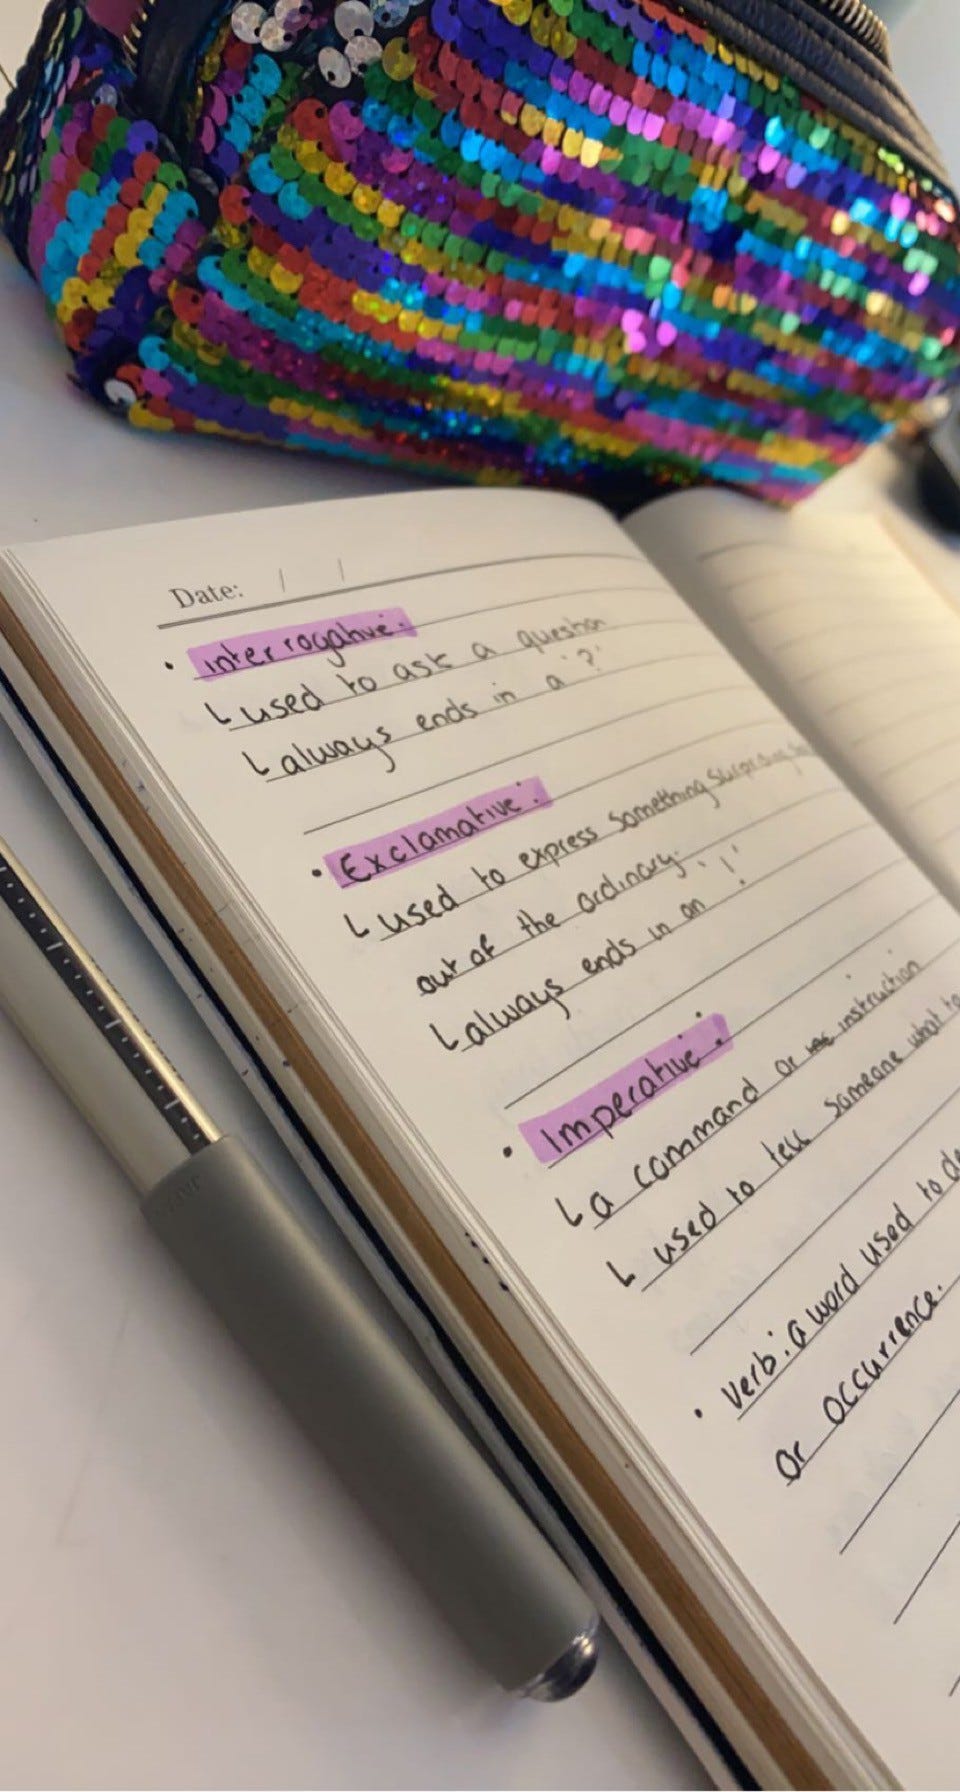 Date: / /
• interrogative:
↳ used to ask a question
↳ always ends in a '?'
• Exclamative:
↳ used to express something surprising
out of the ordinary.
↳ always ends in an '!'
• Imperative:
↳ a command or instruction
↳ used to tell someone what to
• Verb: a word used to
or occurrence.